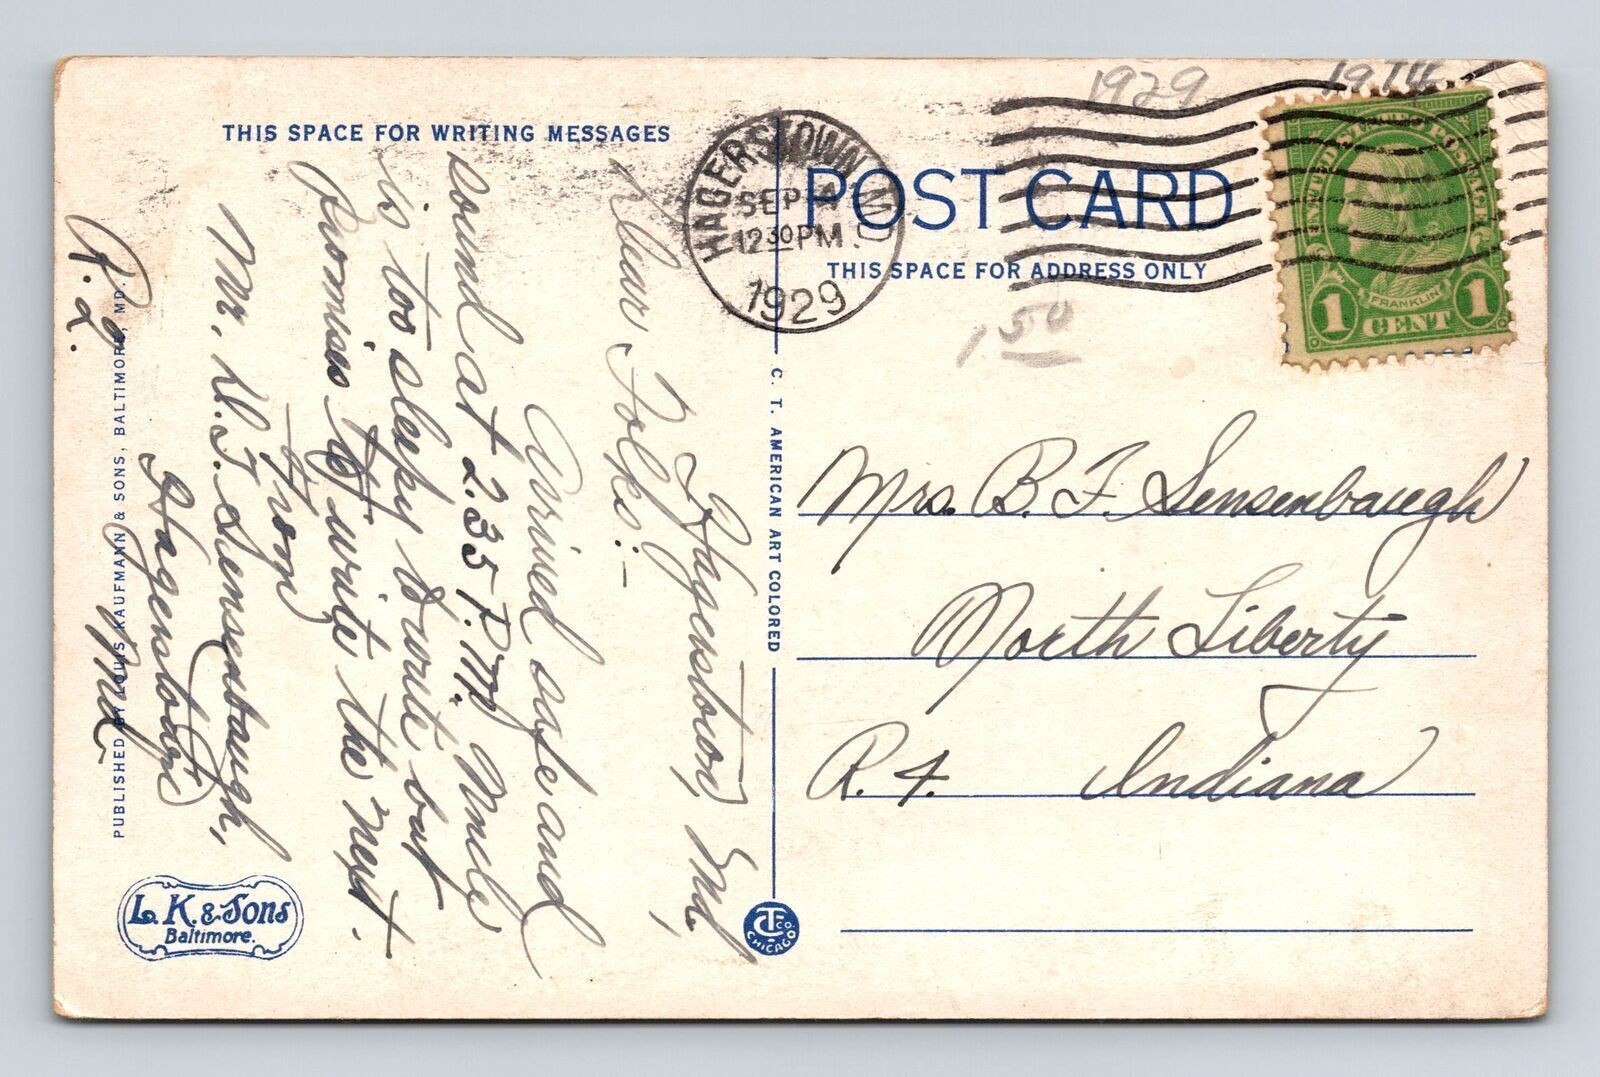 1929
19.14
THIS SPACE FOR WRITING MESSAGES
HAGERSTOWN MD.
SEP 4
12 30 PM
1929
POST CARD
THIS SPACE FOR ADDRESS ONLY
1.50
UNITED STATES POSTAGE
FRANKLIN
1 CENT 1
Hagerstown, Md,
Dear Folks:-
Arrived safe and
sound at 2.35 P.M. Uncle
is too sleepy to write but
promises to write the next.
From
Mr. D. F. Sensenbaugh,
Hagerstown
R. 2. Md.
Mrs. B. F. Sensenbaugh
North Liberty
R. 4. Indiana
C. T. AMERICAN ART COLORED
PUBLISHED BY LOUIS KAUFMANN & SONS, BALTIMORE, MD.
L. K. & Sons
Baltimore.
CT CO.
CHICAGO